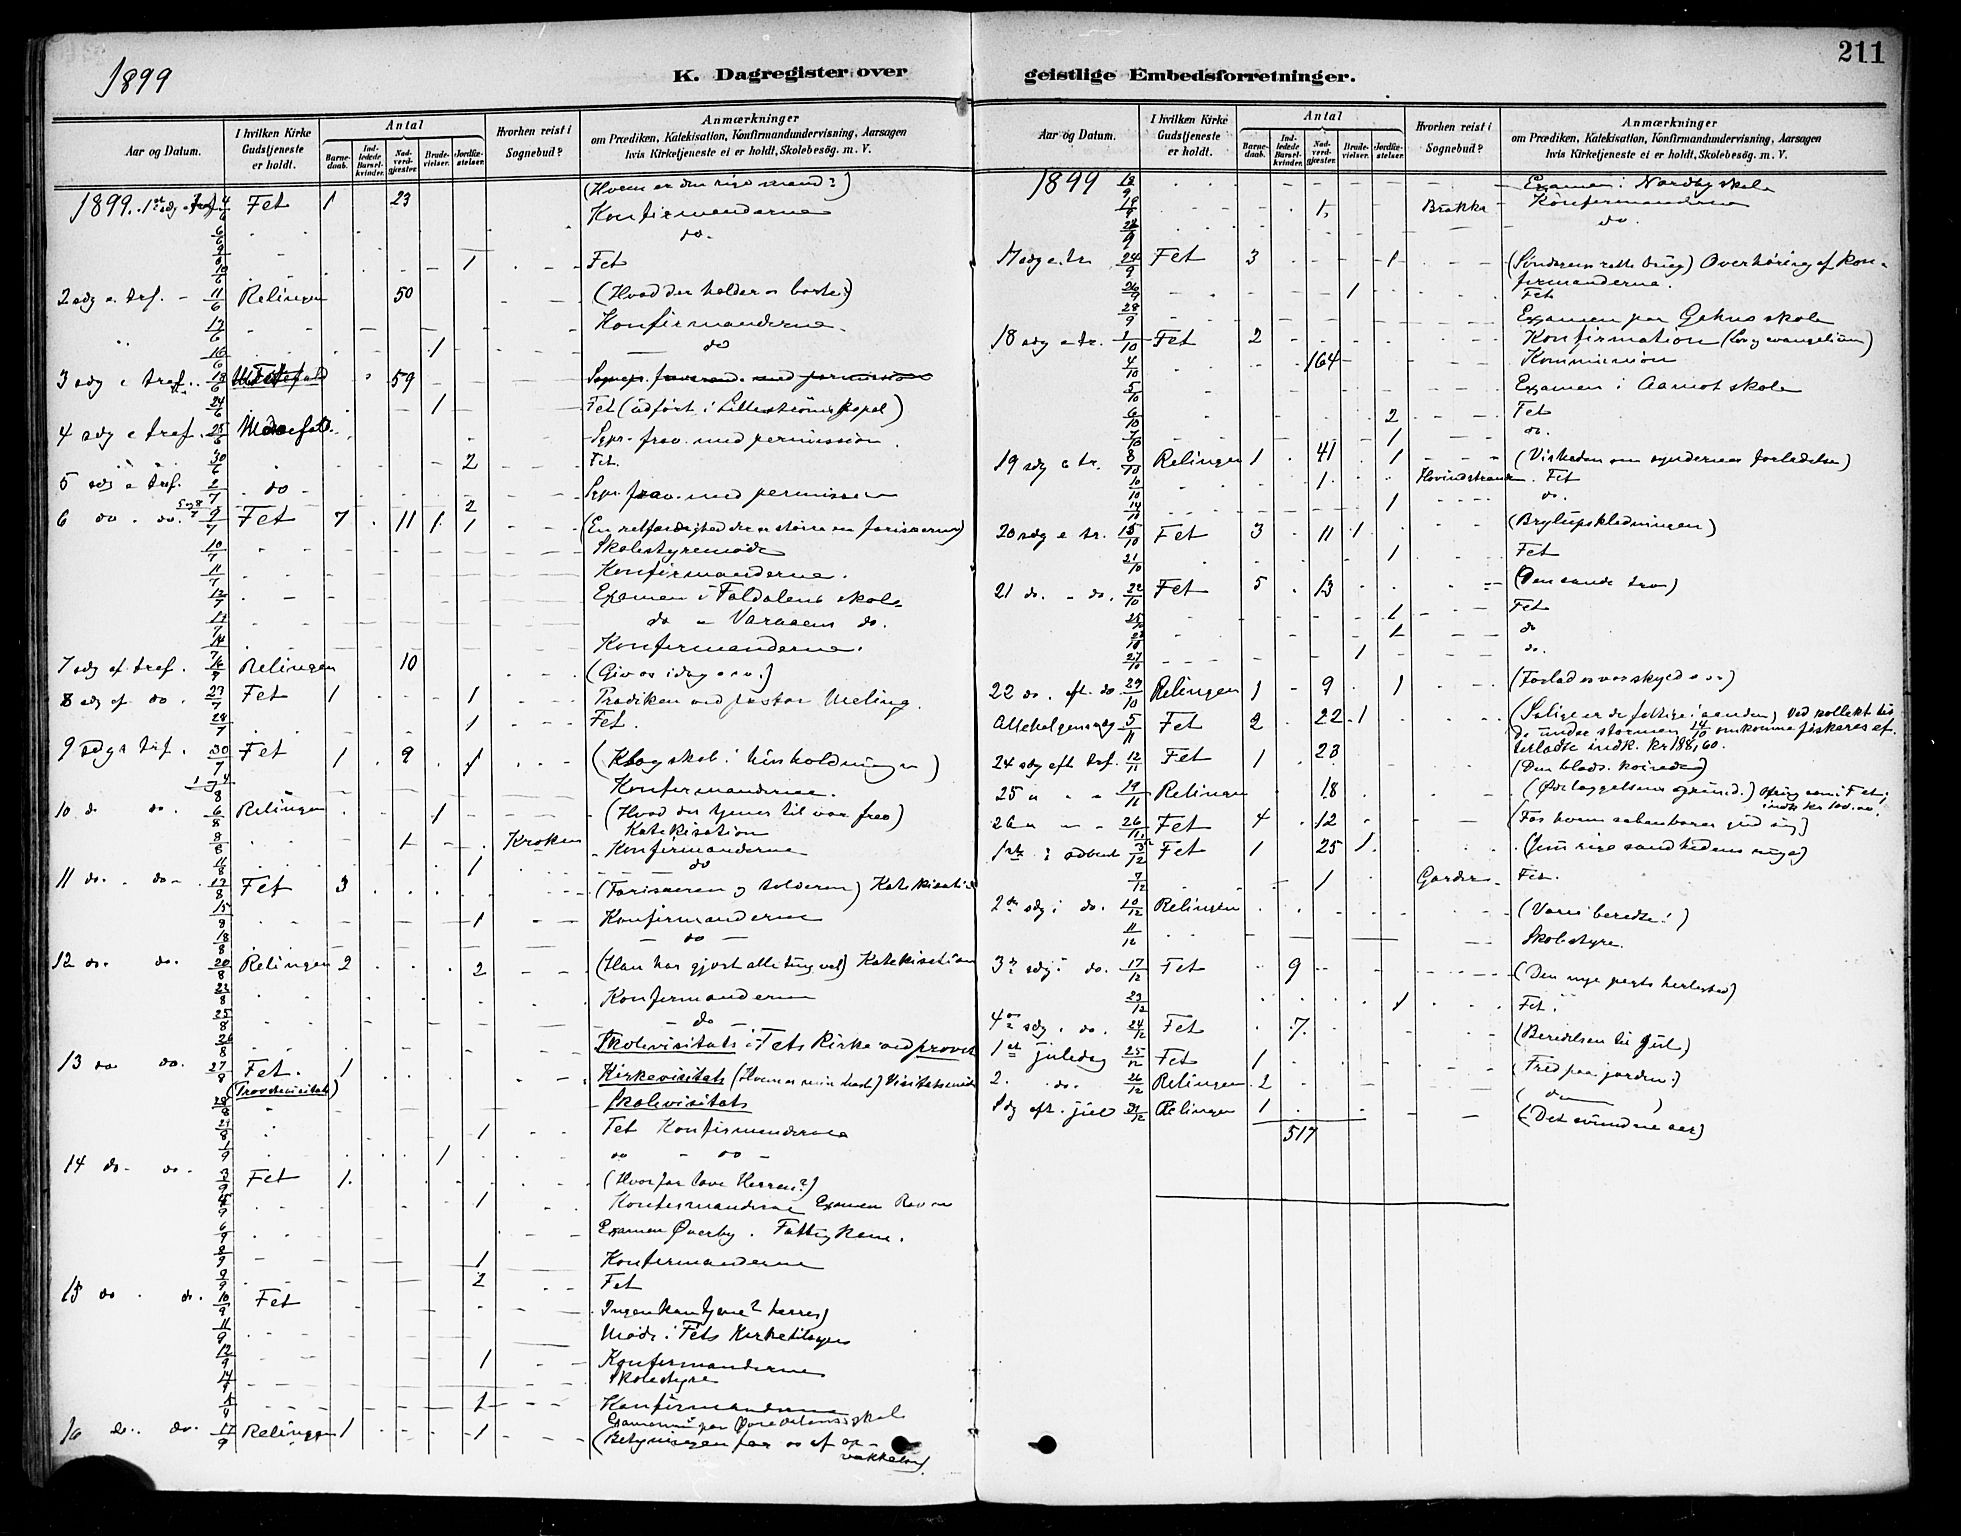 211
1899
K. Dagregister over geistlige Embedsforretninger.
Aar og Datum. I hvilken Kirke Gudstjeneste er holdt. Antal Barnedaab. Indledede Barselkvinder. Nadverdgjæster. Brudevielser. Jordfæstelser. Hvorhen reist i Sognebud? Anmærkninger om Prædiken, Katekisation, Konfirmandundervisning, Aarsagen hvis Kirketjeneste ei er holdt, Skolebesøg. m. V.
1899. 1st sdg e tref 4/6 Fet 1 23 (Hvem er den rige mand?)
6/6 Konfirmanderne
9/6 do.
10/6 1 Fet
2 sdg e. tref. 11/6 Relingen 50 (Hvad der holder os borte?)
13/6 Konfirmanderne.
16/6 1 do
3 sdg e tref. 18/6 Fet 59
24/6 1 Fet (udført i Lillestrøms kapel)
4 sdg e tref. 25/6 Sgpr. frav. med permission.
30/6 2 Fet.
5 sdg e tref. 2/7 do Sgpr. frav. med permission
2
6 do. do. 9/7 Fet 7 11 1 1 (En retfærdighed der er større en farisæernes)
10/7 Skolestyremøde
11/7 Konfirmanderne.
12/7 Examen i Faldalens skole
13/7 do " Varaaens do.
14/7 Konfirmanderne.
7 sdg ef. tref. 16/7 Relingen 10 (Giv os idag o.s.v.)
8 sdg ef do. 23/7 Fet 1 1 Prædiken ved pastor Meling.
28/7 1 Fet.
9 sdg e tref. 30/7 Fet 1 9 1 (Klogskab i husholdningen)
1 4/8 Konfirmanderne.
10 do do. 6/8 Relingen 1 (Hvad der tjener til vor fred) Katekisation
8/8 1 Kroken Konfirmanderne
11/8 1 do
11 do. do. 13/8 Fet 3 (Farisæeren og tolderen) Katekisation
15/8 1 Konfirmanderne
18/8 do
12 do. do. 20/8 Relingen 2 2 (Han har gjort alle ting vel) Katekisation
22/8 Konfirmanderne
25/8 do
26/8 Skolevisitats i Fets Kirke ved provst
13 do do. 27/8 Fet. 1 Kirkevisitats (Hvem er min næste)
(Provstevisitats)
28/8 Skolevisitats
29/8 1 Fet Konfirmanderne
1/9 1 do do
14 do. do. 3/9 Fet 1. (Hvorfor love Herren?)
5/9 1 Konfirmanderne Examen
6/9 Examen Øverby. Fattigkom.
8/9 1 Konfirmanderne
9/9 2 Fet
15 do. do. 10/9 Fet Ingen kan tjene 2 herrer)
11/9 Møde i Fets Kirketilsyn
12/9 1 Konfirmanderne
14/9 Skolestyre
15/9 1 Konfirmanderne
16 do. do. 17/9 Relingen 1 1 (Betydningen for os af opvækkelse)
1899 18/9 Examen i Nordby skole
19/9 1, Brakke Konfirmanderne
22/9 do.
17 sdg e. tr 24/9 Fet 3 1 (Søndagens rette brug) Overhøring af konfirmanderne.
26/9 1 Fet
28/9 Examen paa Gehus skole
18 sdg e tr. 1/10 Fet 2 Konfirmation
4/10 164 Kommunion
5/10 Examen i Aarnot skole
6/10 2 Fet
7/10 1 do.
19 sdg e tr. 8/10 Relingen 1 41 1 (Visheden om syndernes forladelse)
10/10 1 Fet
14/10 1 do.
20 sdg e tr. 15/10 Fet 3 11 1 (Bryllupsklædningen)
21/10 1 Fet
21 do. do. 22/10 Fet 5 13 (Den sande tro)
25/10 1 Fet
1 do
27/10 1 do.
22 do. eft. do. 29/10 Relingen 1 9 1 (Forlad os vor skyld o.s.v.)
Allehelgensdag 5/11 Fet 2 22 1 (Salige er de fattige i aanden) Ved kollekt til de under stormen 14/10 omkomne fiskeres efterladte indk. kr 188,60.
24 sdg eft tref. 12/11 Fet 1 23
25 " " 19/11 Relingen 18
26 " " 26/11 Fet 4 12 (For hvem aabenbarer gud sig)
1ste i advent 3/12 Fet 1 25 1 (Jesu rige sandhedens rige)
7/12 1 Garder Fet.
2den sdg i do. 10/12 Relingen (Vær beredte!)
11/12 Skolestyre.
3de sdg i do. 17/12 Fet 9 (Den nye pagts herlighed)
23/12 1 Fet.
4de sdg i do. 24/12 Fet 7 (Beredelsen til Jul)
1st juledag 25/12 Fet 1 (Fred paa jorden.)
2. do. 26/12 Relingen 2 (do)
Sdg eft. jul 31/12 Relingen 1 (Det svundne aar)
517